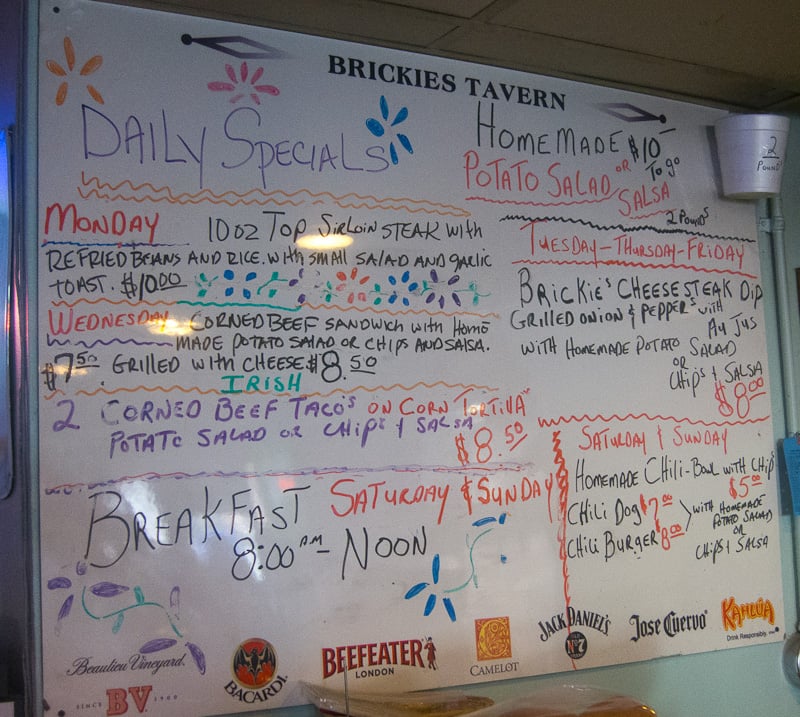 BRICKIES TAVERN
DAILY SPECIALS
HOMEMADE $10—
POTATO SALAD OR SALSA To go
2 POUNDS
2
POUND
MONDAY 10 OZ TOP SIRLOIN STEAK with
REFRIED BEANS AND RICE. with SMALL SALAD AND GARLIC
TOAST. $10.00
WEDNESDAY CORNED BEEF SANDWICH with HOME
MADE POTATO SALAD OR CHIPS AND SALSA.
$7.50 GRILLED WITH CHEESE $8.50
IRISH
2 CORNED BEEF TACO'S ON CORN TORTILLA
POTATO SALAD OR CHIPS & SALSA
$8.50
BREAKFAST SATURDAY & SUNDAY
8:00 AM – NOON
TUESDAY–THURSDAY–FRIDAY
BRICKIE'S CHEESESTEAK DIP
GRILLED ONION & PEPPERS with
AU JUS
WITH HOMEMADE POTATO SALAD
OR
CHIPS & SALSA
$8.00
SATURDAY & SUNDAY
HOMEMADE CHILI-BOWL WITH CHIPS
$5.00
CHILI DOG $7.00
CHILI BURGER $8.00
WITH HOMEMADE
POTATO SALAD
OR
CHIPS & SALSA
Beaulieu Vineyard.
SINCE BV 1900
BACARDI
BEEFEATER
LONDON
CAMELOT
JACK DANIEL'S
OLD No 7
Jose Cuervo
KAHLÚA
Drink Responsibly.